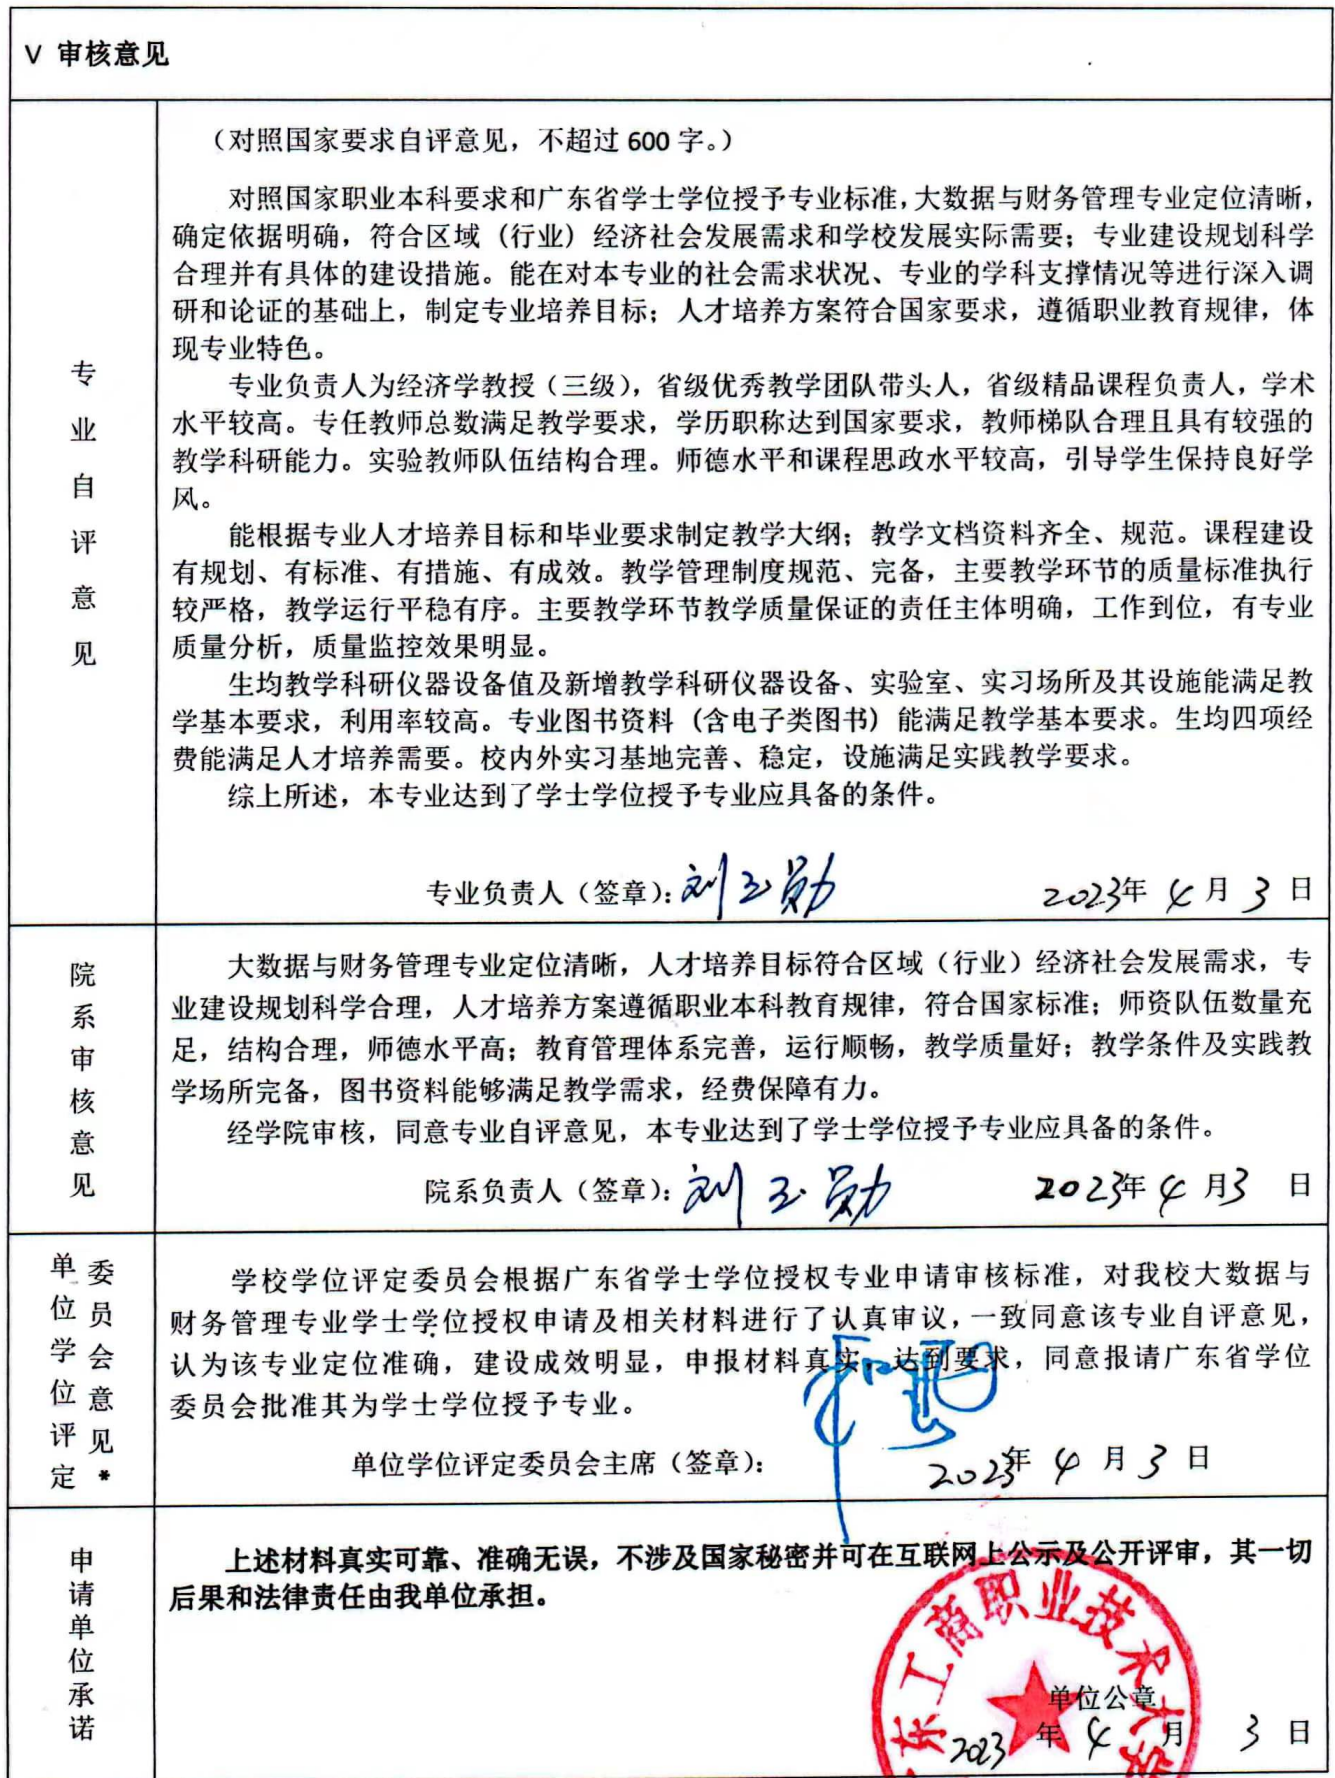 V 审核意见
专业自评意见
（对照国家要求自评意见，不超过 600 字。）
对照国家职业本科要求和广东省学士学位授予专业标准，大数据与财务管理专业定位清晰，
确定依据明确，符合区域（行业）经济社会发展需求和学校发展实际需要；专业建设规划科学
合理并有具体的建设措施。能在对本专业的社会需求状况、专业的学科支撑情况等进行深入调
研和论证的基础上，制定专业培养目标；人才培养方案符合国家要求，遵循职业教育规律，体
现专业特色。
专业负责人为经济学教授（三级），省级优秀教学团队带头人，省级精品课程负责人，学术
水平较高。专任教师总数满足教学要求，学历职称达到国家要求，教师梯队合理且具有较强的
教学科研能力。实验教师队伍结构合理。师德水平和课程思政水平较高，引导学生保持良好学
风。
能根据专业人才培养目标和毕业要求制定教学大纲；教学文档资料齐全、规范。课程建设
有规划、有标准、有措施、有成效。教学管理制度规范、完备，主要教学环节的质量标准执行
较严格，教学运行平稳有序。主要教学环节教学质量保证的责任主体明确，工作到位，有专业
质量分析，质量监控效果明显。
生均教学科研仪器设备值及新增教学科研仪器设备、实验室、实习场所及其设施能满足教
学基本要求，利用率较高。专业图书资料（含电子类图书）能满足教学基本要求。生均四项经
费能满足人才培养需要。校内外实习基地完善、稳定，设施满足实践教学要求。
综上所述，本专业达到了学士学位授予专业应具备的条件。
专业负责人（签章）：刘玉勋 2023年 4 月 3 日
院系审核意见
大数据与财务管理专业定位清晰，人才培养目标符合区域（行业）经济社会发展需求，专
业建设规划科学合理，人才培养方案遵循职业本科教育规律，符合国家标准；师资队伍数量充
足，结构合理，师德水平高；教育管理体系完善，运行顺畅，教学质量好；教学条件及实践教
学场所完备，图书资料能够满足教学需求，经费保障有力。
经学院审核，同意专业自评意见，本专业达到了学士学位授予专业应具备的条件。
院系负责人（签章）：刘玉勋 2023年 4 月 3 日
单位学位评定
委员会意见*
学校学位评定委员会根据广东省学士学位授权专业申请审核标准，对我校大数据与
财务管理专业学士学位授权申请及相关材料进行了认真审议，一致同意该专业自评意见，
认为该专业定位准确，建设成效明显，申报材料真实，达到要求，同意报请广东省学位
委员会批准其为学士学位授予专业。
单位学位评定委员会主席（签章）：
2023年 4 月 3 日
申请单位承诺
上述材料真实可靠、准确无误，不涉及国家秘密并可在互联网上公示及公开评审，其一切
后果和法律责任由我单位承担。
东工商职业技术大学
单位公章
2023 年 4 月 3 日